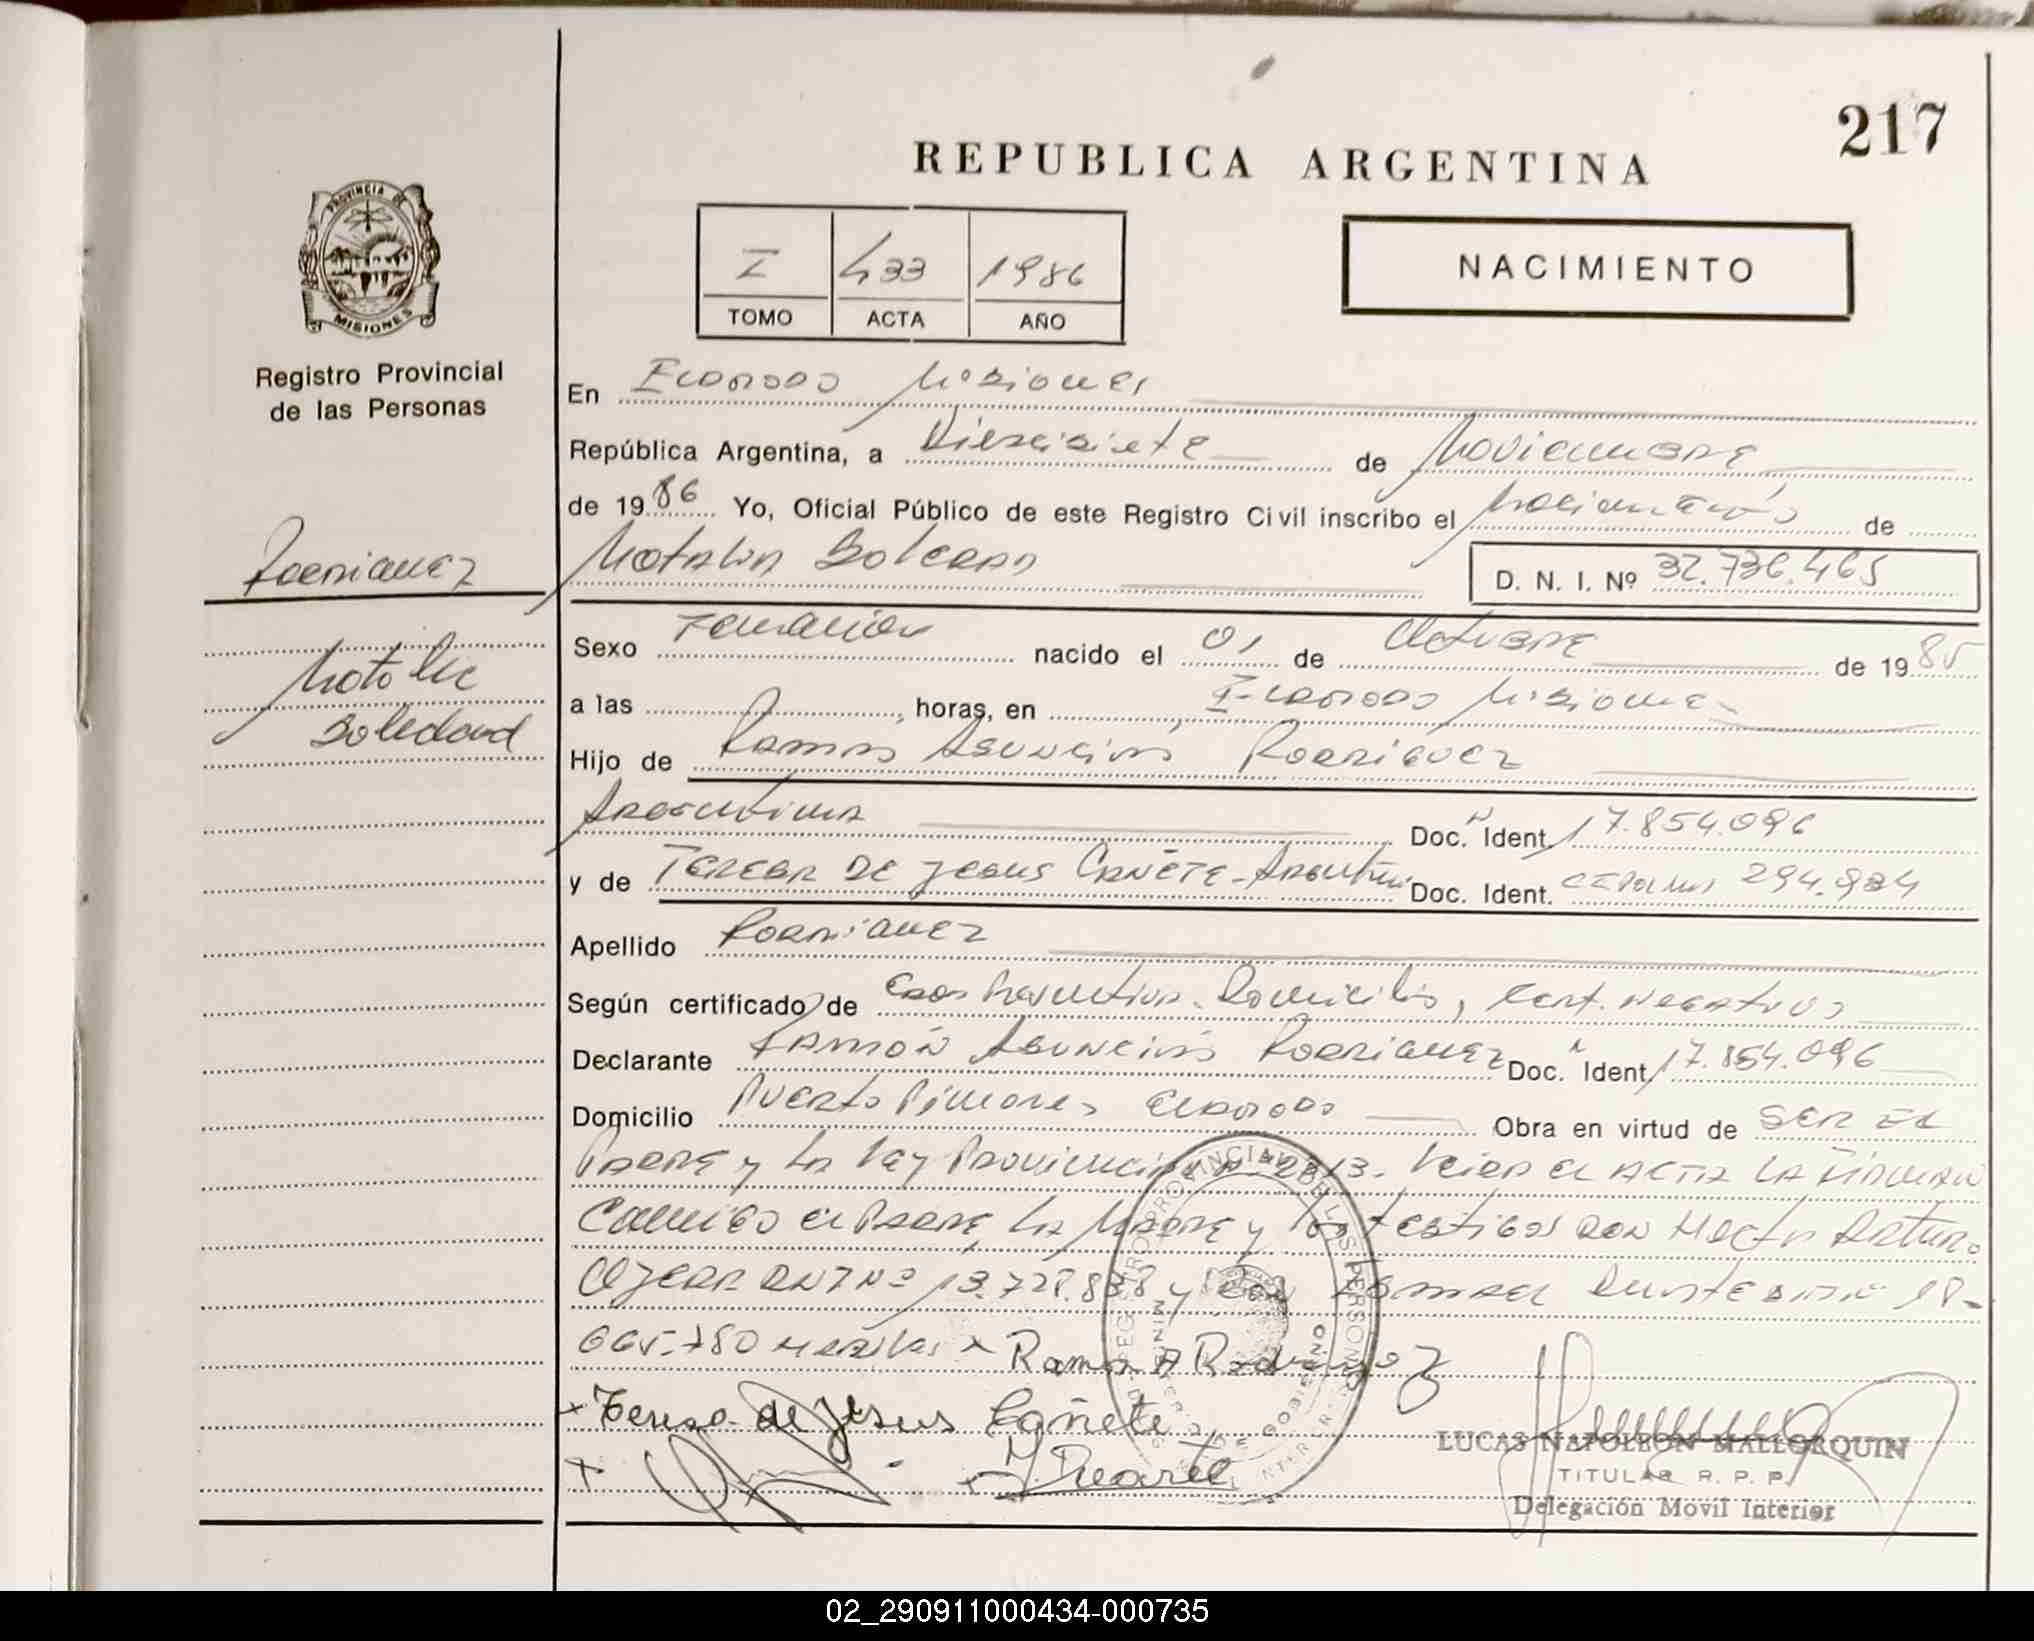 217
REPUBLICA ARGENTINA
I 433 1986
TOMO ACTA AÑO
NACIMIENTO
PROVINCIA DE
MISIONES
Registro Provincial
de las Personas
En Eldorado Misiones
República Argentina, a Diecisiete de Noviembre
de 1986 Yo, Oficial Público de este Registro Civil inscribo el Nacimiento de
Rodriguez
Natalia Soledad
D. N. I. Nº 32.736.465
Natalia
Soledad
Sexo Femenino nacido el 01 de Octubre de 1985
a las , horas, en Eldorado Misiones
Hijo de Ramon Asunción Rodriguez
Argentina Doc. Ident. 17.854.096
y de Teresa de Jesus Cañete - Argentina Doc. Ident. 294.984
Apellido Rodriguez
Según certificado de Domicilio, Cert. Negativo
Declarante Ramón Asunción Rodriguez Doc. Ident. 17.854.096
Domicilio Puerto Eldorado Obra en virtud de ser el
Padre y la Ley Provincial Nº 2813. Leida el acta la firman
conmigo el Padre, la Madre y los testigos Don Hector Arturo
DNI Nº 13.728.838 y Don Duarte 18-
665.780 Ramon A Rodriguez
x Teresa de Jesus Cañete
x x Duarte
LUCAS NAPOLEON MALLORQUIN
TITULAR R. P. P.
Delegación Movil Interior
02_290911000434-000735